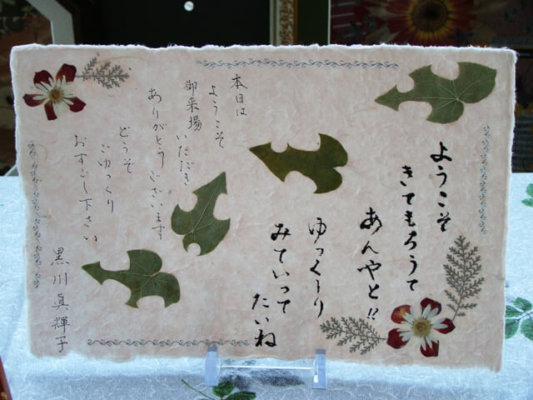 ようこそ
きてもろうて
あんやと!!
ゆっくーり
みていって
たいね
本日は
ようこそ
御来場
いただき
ありがとうございます
どうぞ
ごゆっくり
おすごし下さい
黒川真輝子